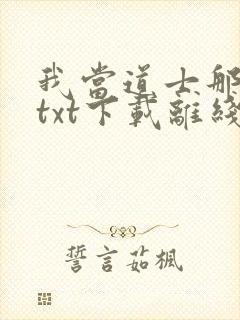 我當道士那
txt下載離綫
誓言茹楓